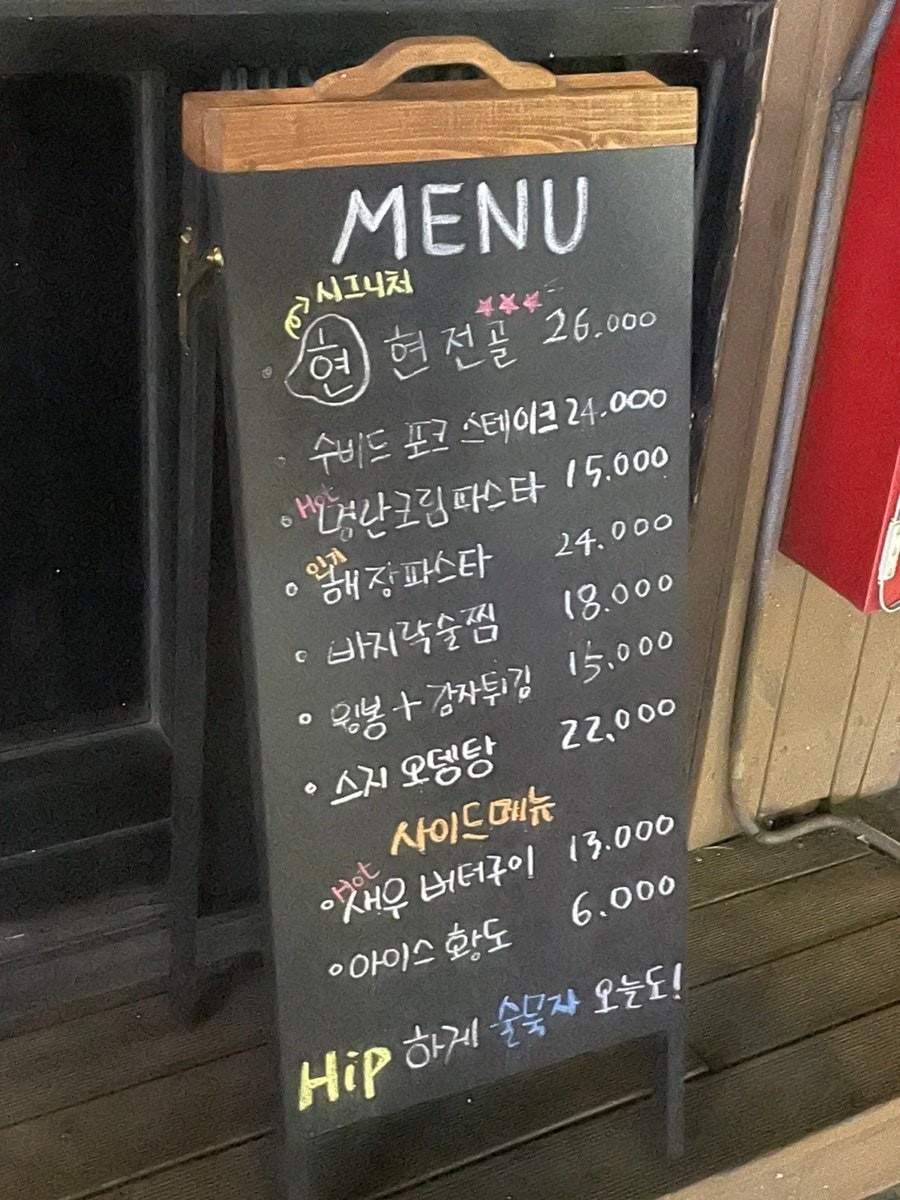 MENU
시그니처
현 현전골 26.000
수비드 포크 스테이크 24.000
Hot
명란크림파스타 15.000
인기
해장파스타 24.000
바지락술찜 18.000
윙봉 + 감자튀김 15.000
스지 오뎅탕 22,000
사이드메뉴
Hot
새우 버터구이 13.000
아이스 황도 6.000
Hip 하게 술묵자 오늘도!